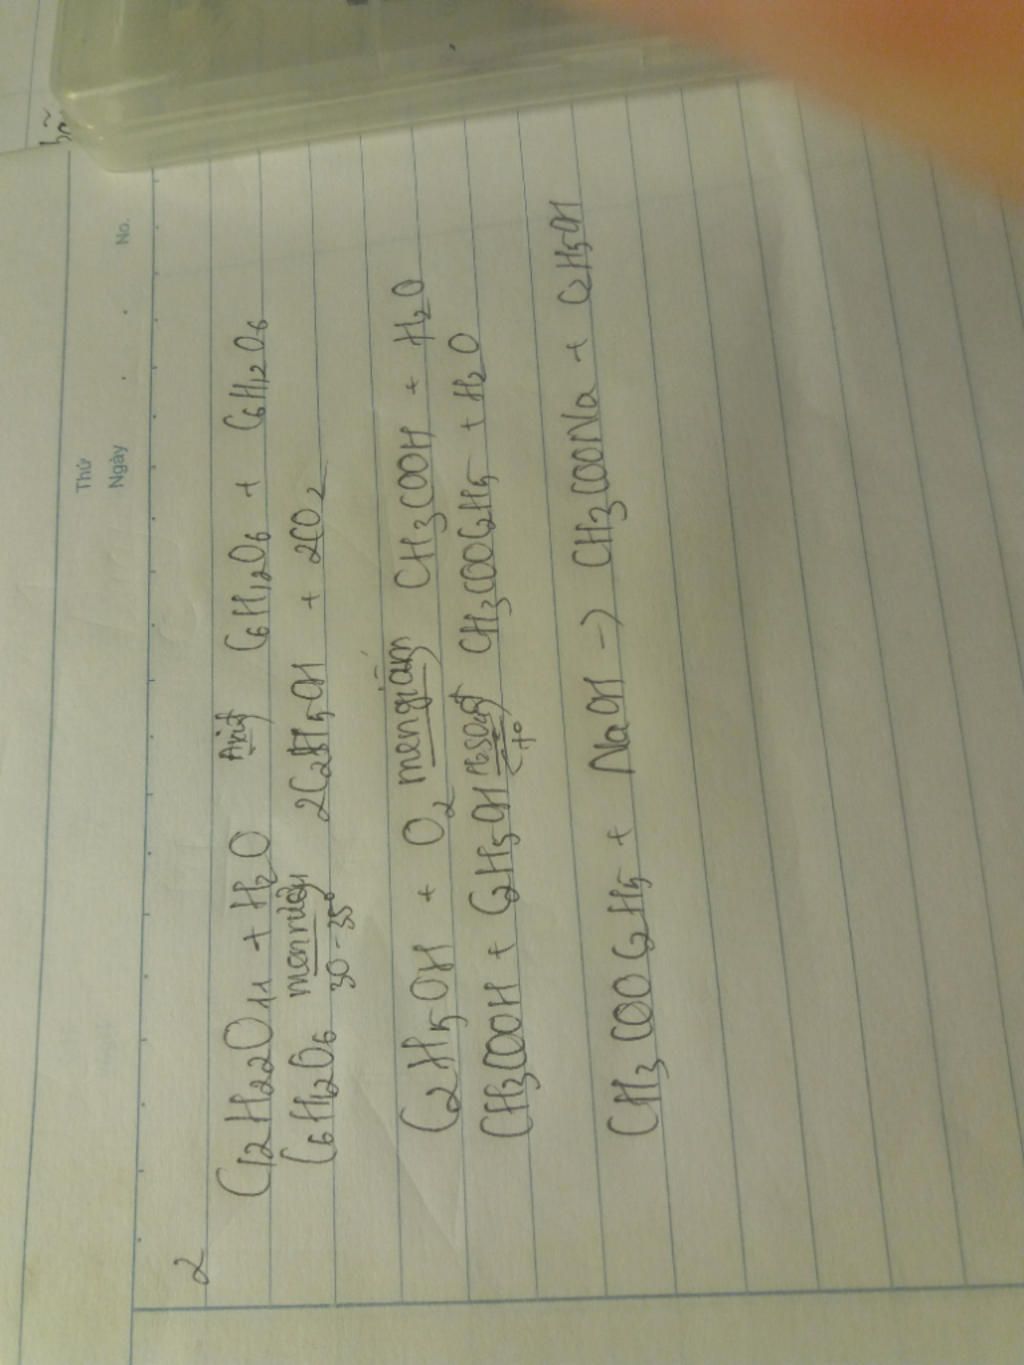 Thứ
Ngày No.
2
C12H22O11 + H2O Axit C6H12O6 + C6H12O6
C6H12O6 men rượu 30-35° 2C2H5OH + 2CO2
C2H5OH + O2 men giấm CH3COOH + H2O
CH3COOH + C2H5OH t° CH3COOC2H5 + H2O
CH3COOC2H5 + NaOH → CH3COONa + C2H5OH